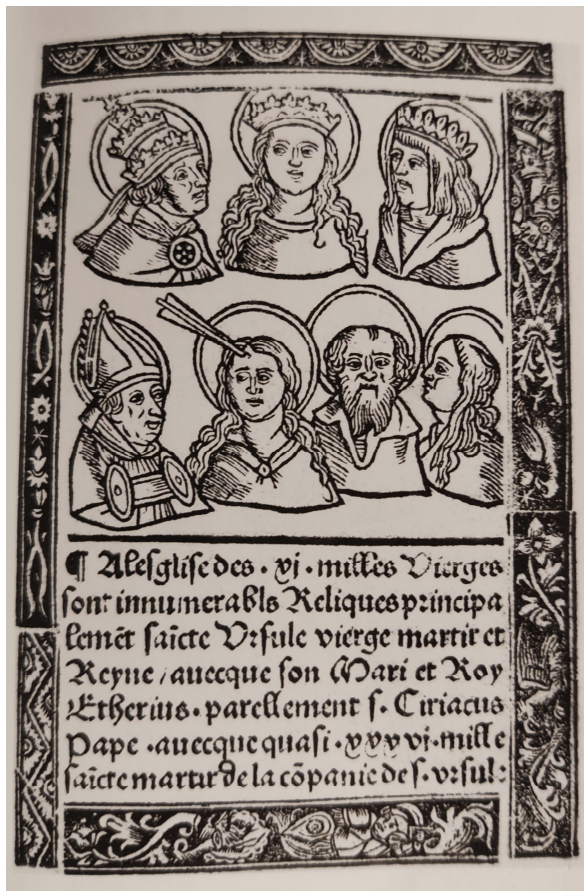 ¶ Alesglise des · xi · milles Vierges
sont innumerabls Reliques principa
lemēt saīcte Vrsule vierge martir et
Reyne / auecque son Mari et Roy
Etherius · parellement s · Ciriacus
Pape · auecque quasi · xxxvi · mille
saīcte martir de la cōpanie de s · vrsul: